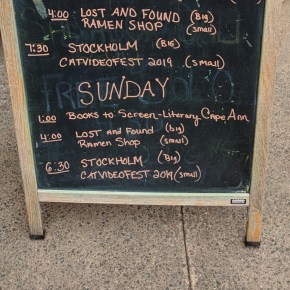 4:00 LOST AND FOUND (Big)
RAMEN SHOP (small)
7:30 STOCKHOLM (BIG)
CATVIDEOFEST 2019 (small)
SUNDAY
1:00 BOOKS to SCREEN-Literary Cape Ann
4:00 LOST and Found (big)
Ramen Shop (small)
6:30 STOCKHOLM (Big)
CATVIDEOFEST 2019 (small)